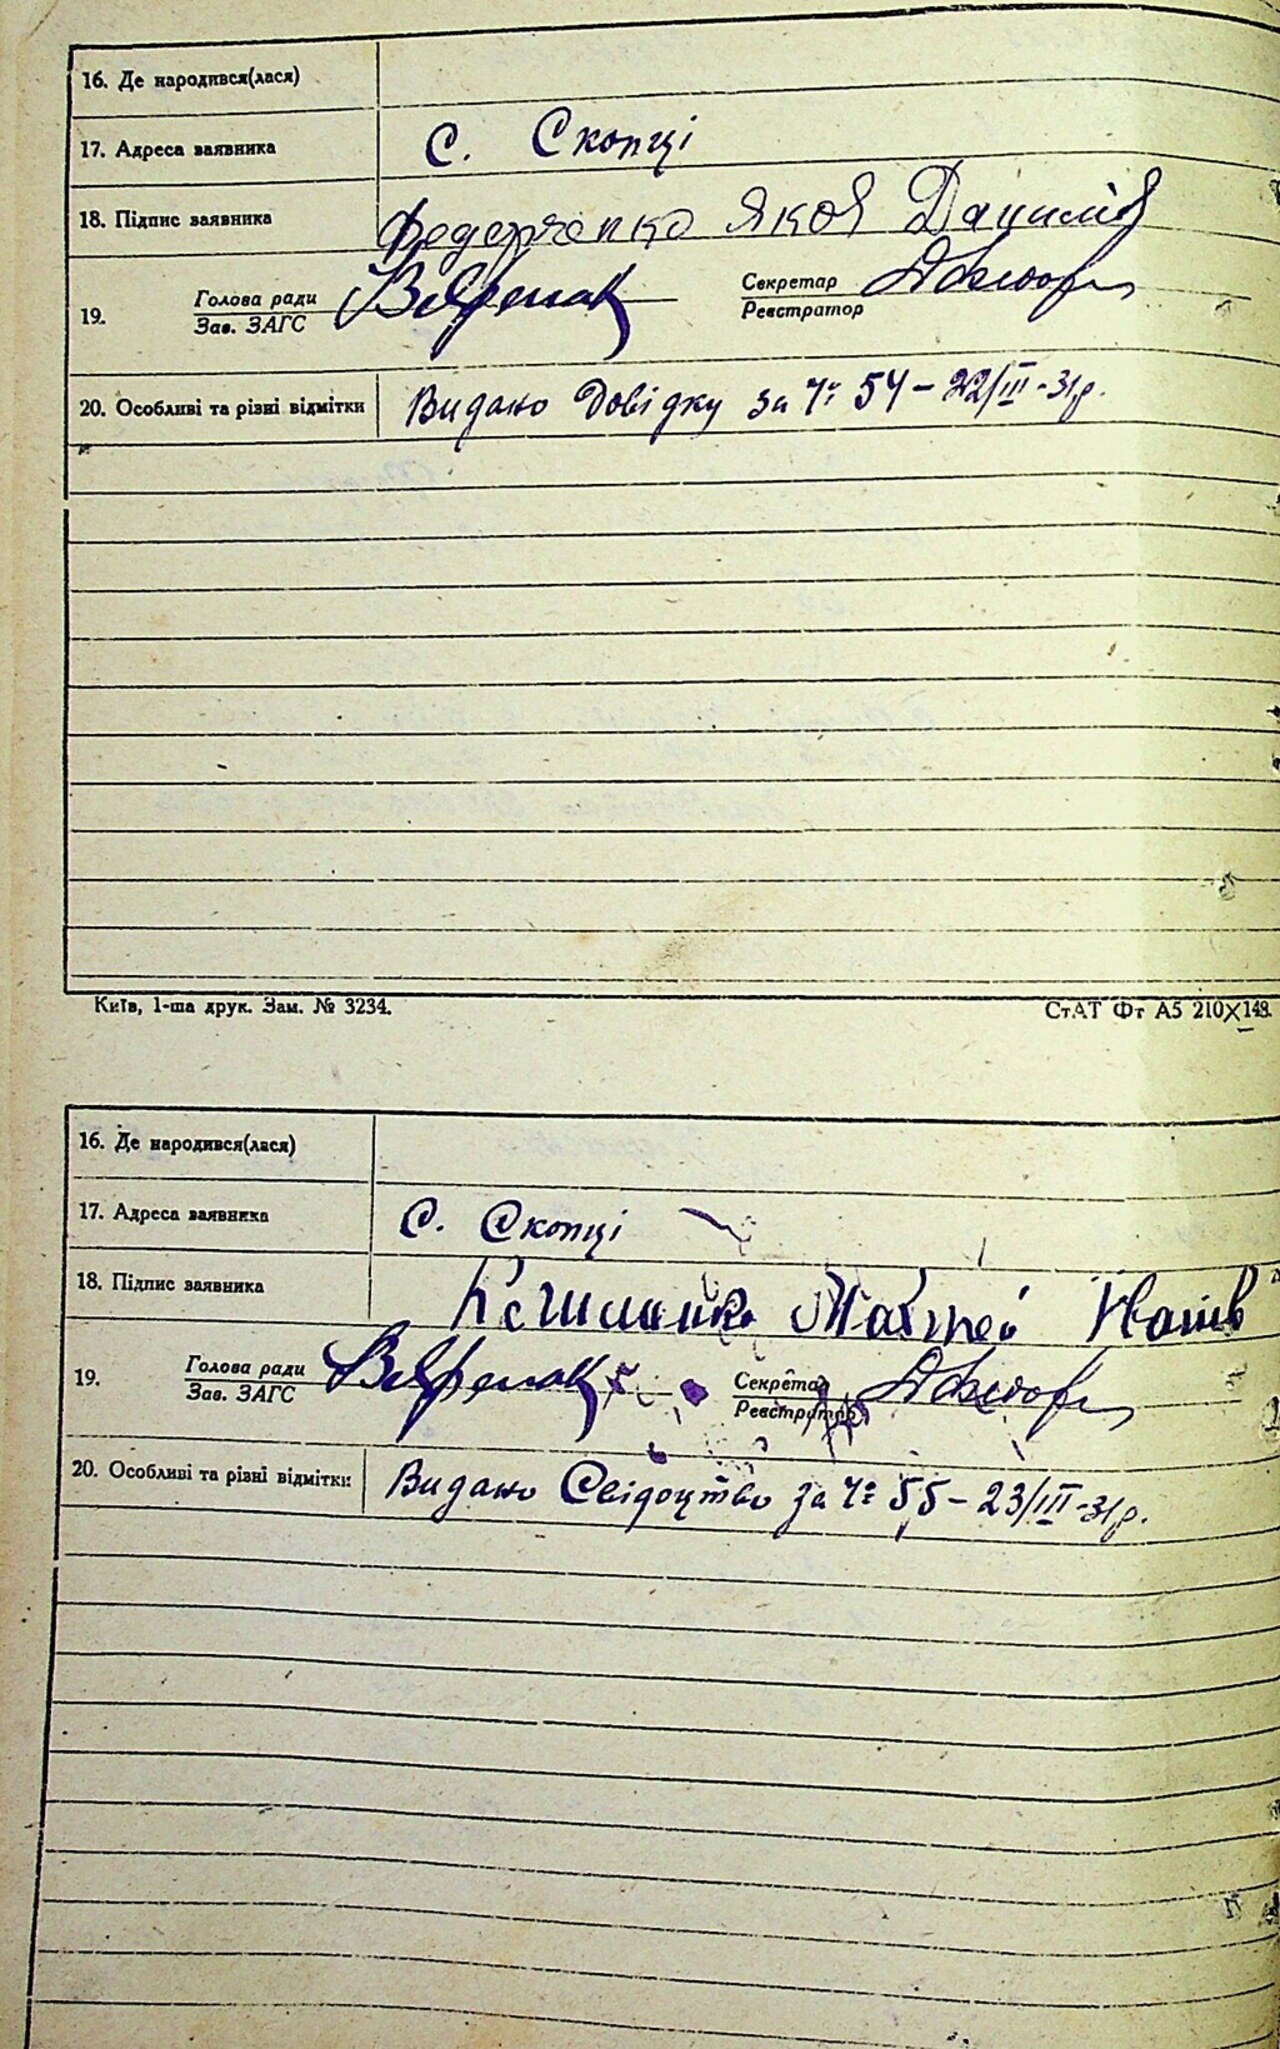 16. Де народився(лася)
17. Адреса заявника С. Скопці
18. Підпис заявника Федорченко Яков Данилів
19. Голова ради
Зав. ЗАГС
Секретар
Реєстратор
20. Особливі та різні відмітки Видано Довідку за Ч: 54 – 22/III - 31р.
Київ, 1-ша друк. Зам. № 3234.
СтАТ Фт А5 210X148.
16. Де народився(лася)
17. Адреса заявника С. Скопці
18. Підпис заявника Матвей
19. Голова ради
Зав. ЗАГС
Секретар
Реєстратор
20. Особливі та різні відмітки Видано Свідоцтво за Ч: 55 – 23/III - 31р.